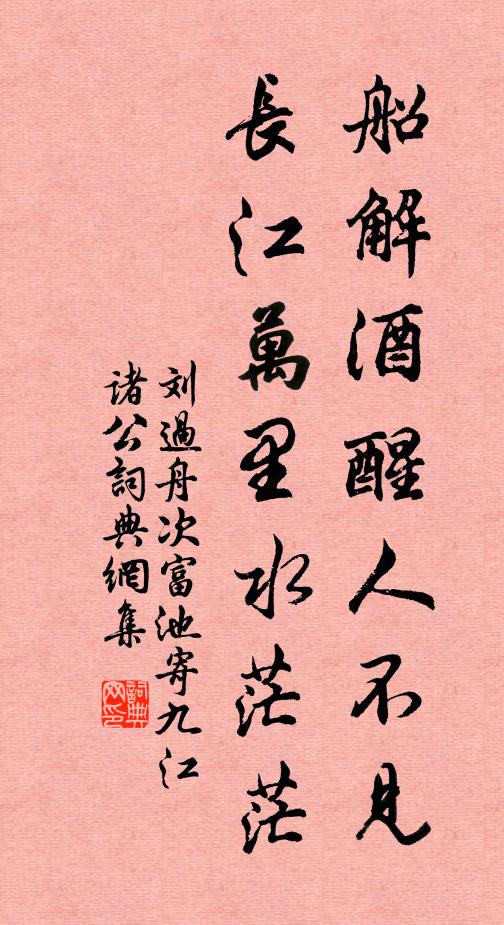 船解酒醒人不見
長江萬里水茫茫
刘過舟次富池寄九江
诸公詞典網集
詞典网印